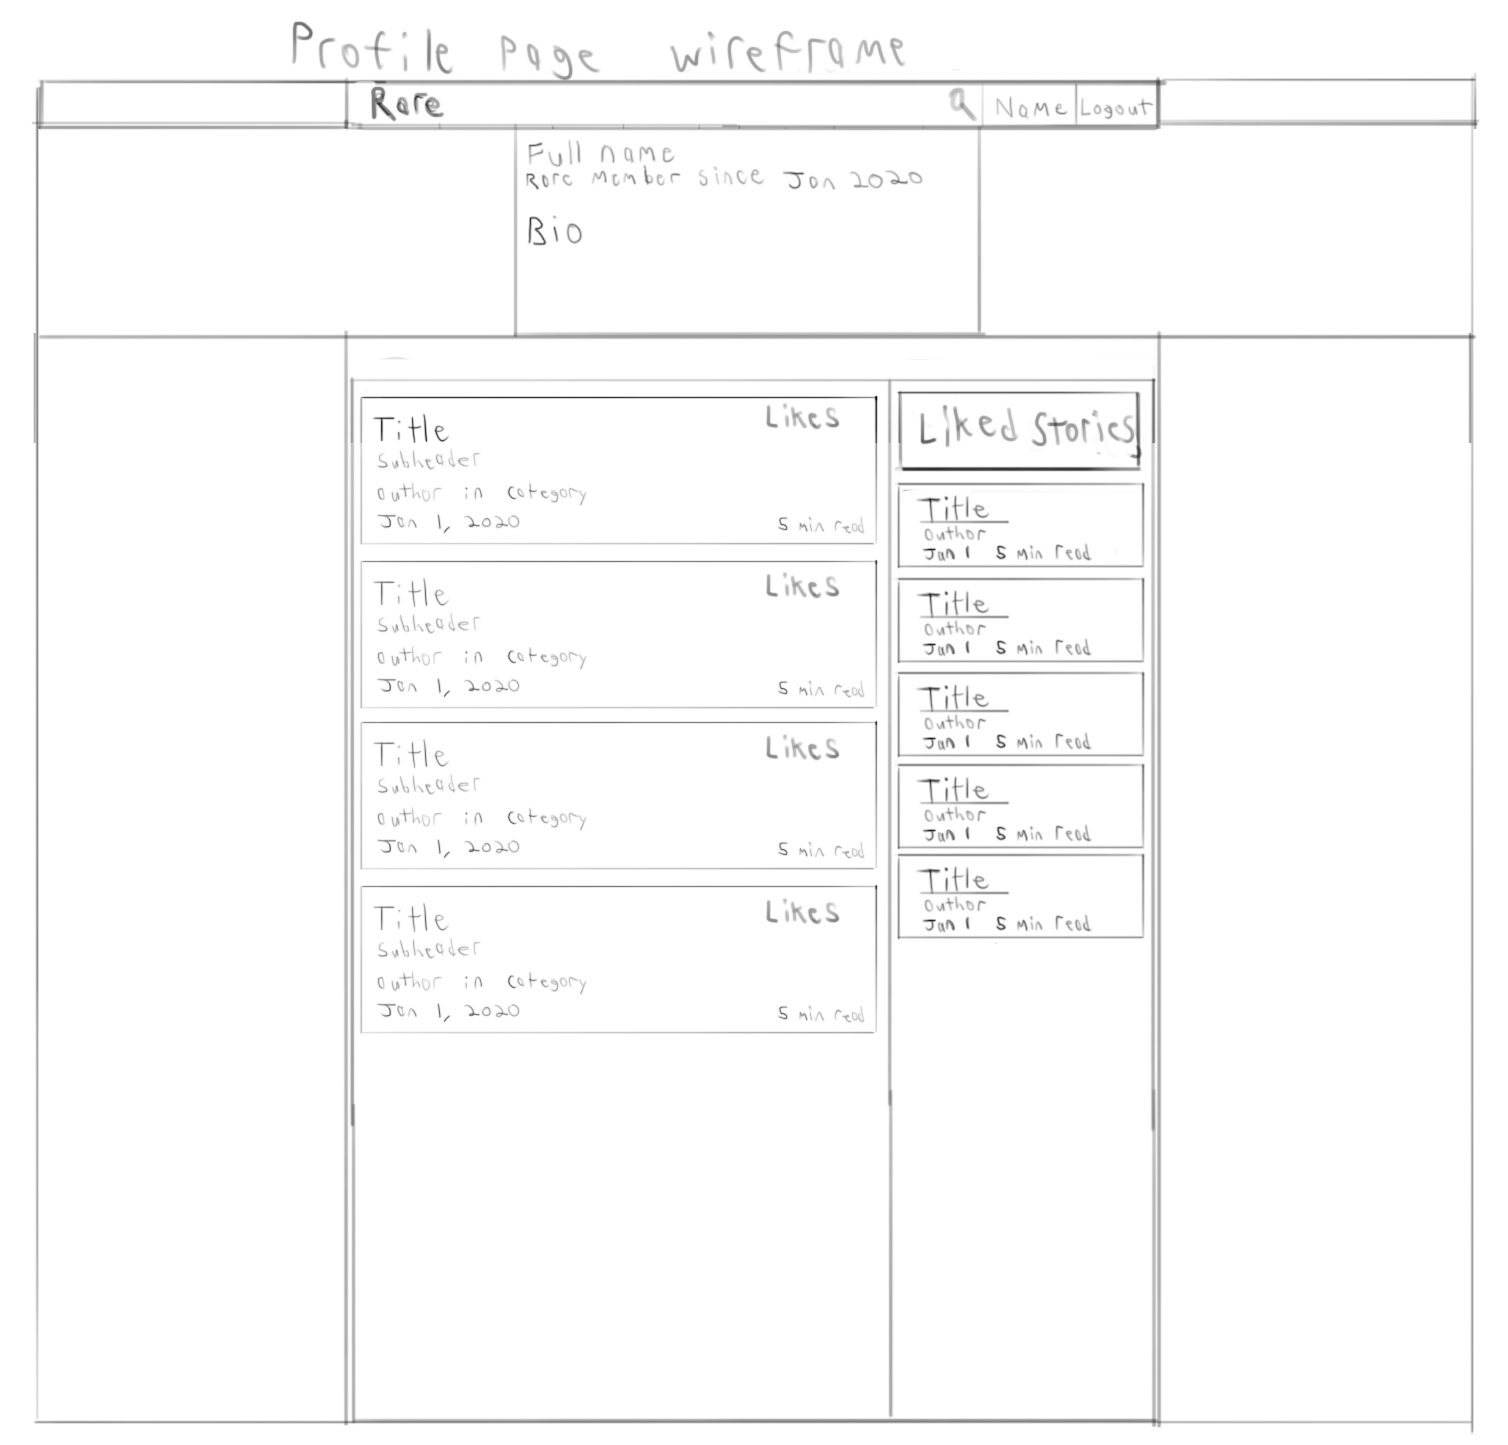 Profile page wireframe
Rare
Name
Logout
Full name
Rare Member since Jan 2020
Bio
Title
Likes
Subheader
author in category
Jan 1, 2020
5 min read
Title
Likes
Subheader
author in category
Jan 1, 2020
5 min read
Title
Likes
Subheader
author in category
Jan 1, 2020
5 min read
Title
Likes
Subheader
author in category
Jan 1, 2020
5 min read
Liked Stories
Title
author
Jan 1 5 min read
Title
author
Jan 1 5 min read
Title
author
Jan 1 5 min read
Title
author
Jan 1 5 min read
Title
author
Jan 1 5 min read